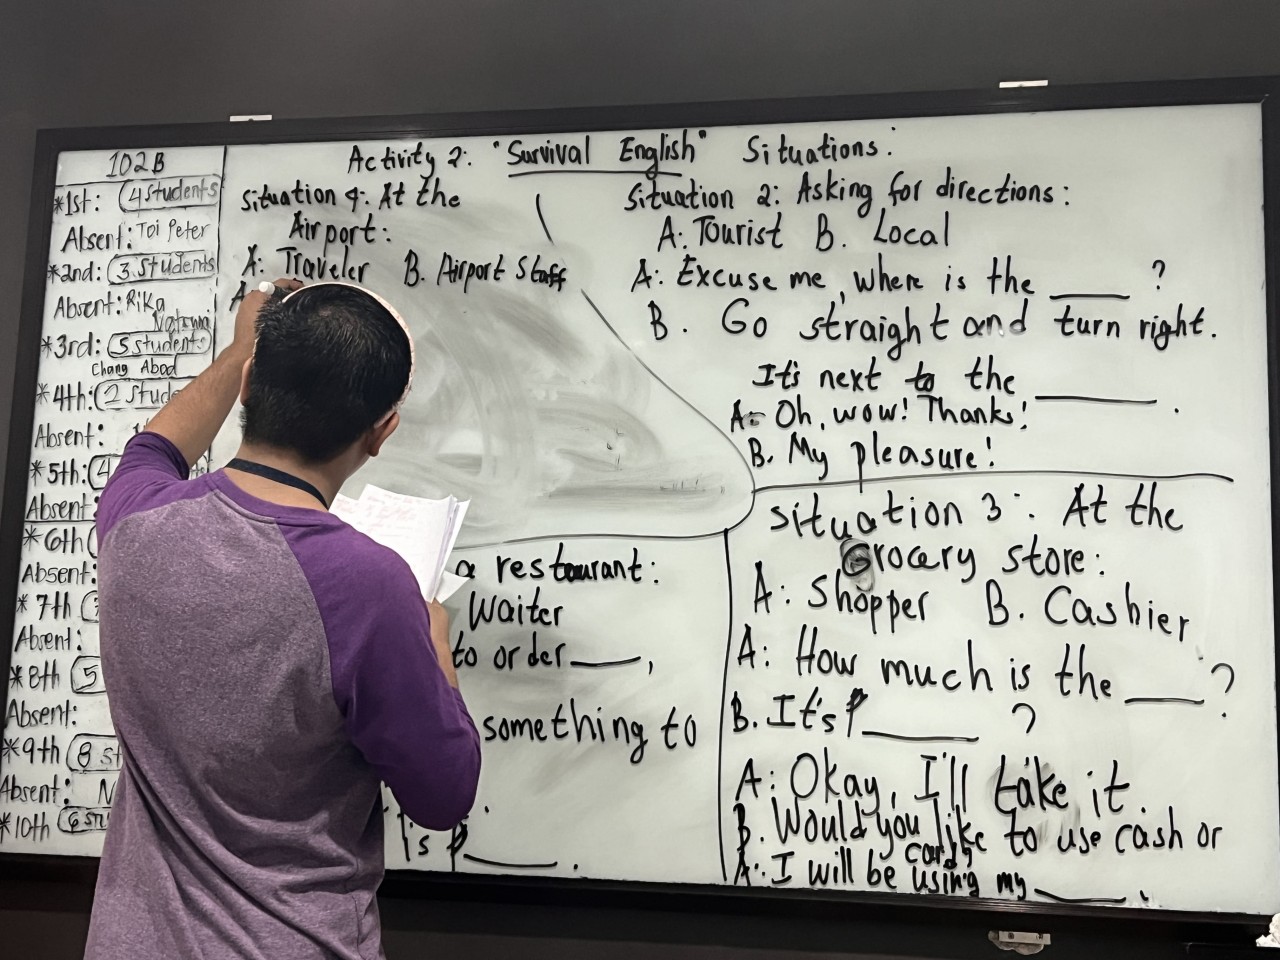 102B
*1st: 4 students
Absent: Toi Peter
*2nd: 3 students
Absent: Rika
*3rd: 5 students
Chang Abod
*4th: 2
Absent:
*5th: 4
Absent:
*6th
Absent:
*7th
Absent:
*8th 5
Absent:
*9th 8
Absent: N
*10th 6
Activity 2: "Survival English" Situations:
Situation 4: At the
Airport:
A: Traveler B. Airport Staff
A
Situation 2: Asking for directions:
A: Tourist B. Local
A: Excuse me, where is the ____ ?
B. Go straight and turn right.
It's next to the ____ .
A: Oh, wow! Thanks!
B. My pleasure!
a restaurant:
Waiter
to order ____,
something to
____ .
Situation 3: At the
Grocery store:
A: Shopper B. Cashier
A: How much is the ____ ?
B. It's ₱ ____ ?
A: Okay, I'll take it.
B. Would you like to use cash or
card?
A: I will be using my ____ .